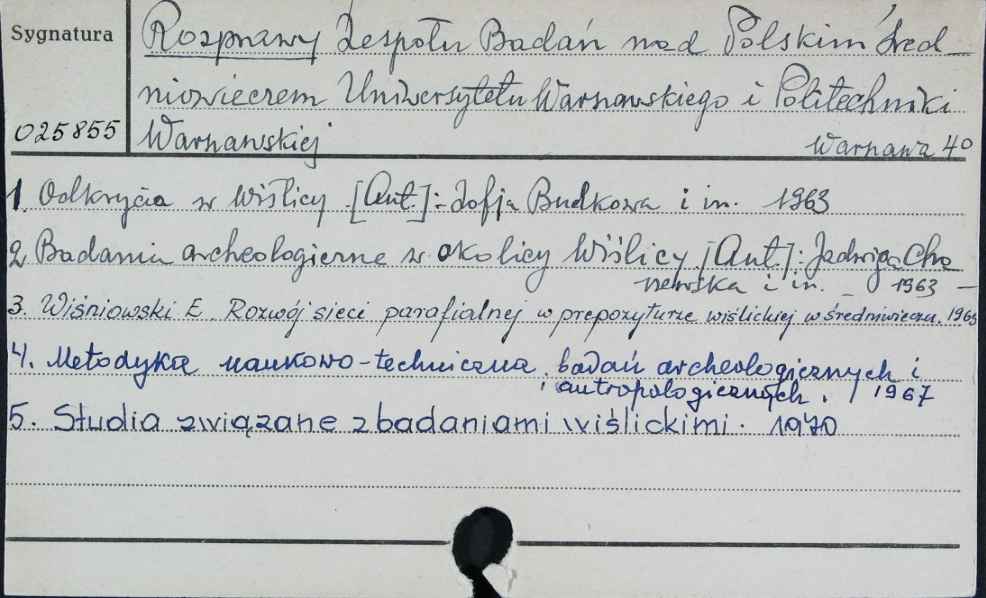 Sygnatura
Rozprawy Zespołu Badań nad Polskim Śred-
niowieczem Uniwersytetu Warszawskiego i Politechniki
025855
Warszawskiej
Warszawa 4°
1. Odkrycia w Wiślicy [Aut.]: Zofja Budkowa i in. 1963
2 Badania archeologiczne w okolicy Wiślicy [Aut]: Jadwiga Cho
newska i in. _ 1963 —
3. Wiśniowski E. Rozwój sieci parafialnej w prepozyturze wiślickiej w średniowieczu. 1965
4. Metodyka naukowo-techniczna badań archeologicznych i
antropologicznych. 1967
5. Studia związane z badaniami wiślickimi. 1970